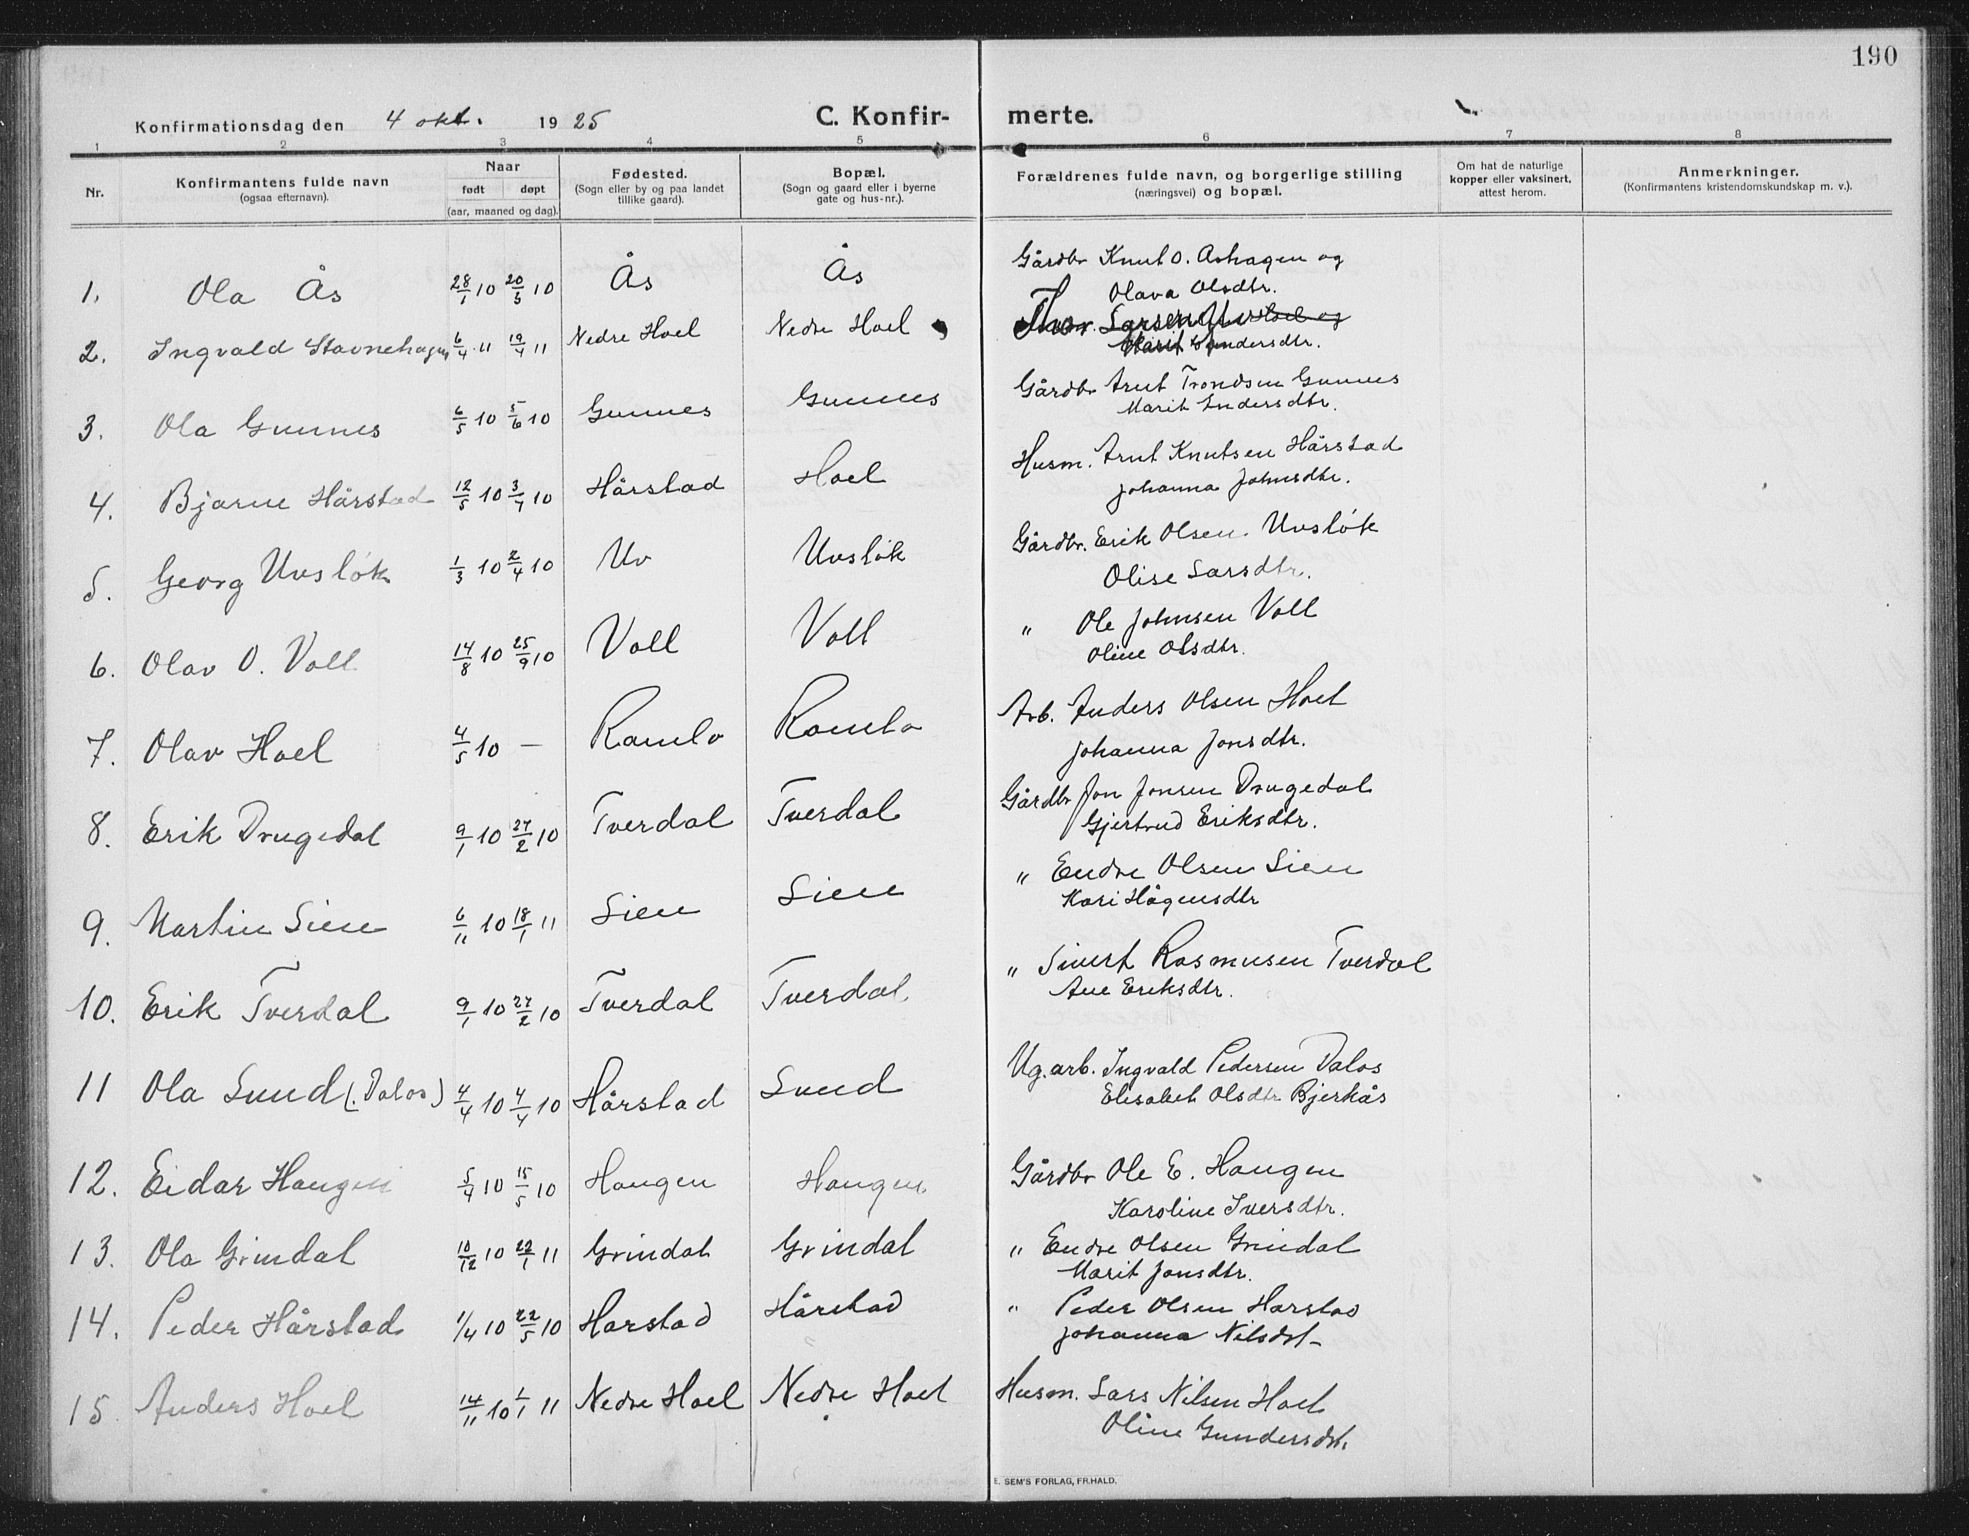 190
Konfirmationsdag den 4 okt. 1925 C. Konfir- merte.
1 2 3 4 5 6 7 8
Nr. Konfirmantens fulde navn (ogsaa efternavn). Naar født døpt (aar, maaned og dag). Fødested. (Sogn eller by og paa landet tillike gaard). Bopæl. (Sogn og gaard eller i byerne gate og hus-nr.). Forældrenes fulde navn, og borgerlige stilling (næringsvei) og bopæl. Om hat de naturlige kopper eller vaksinert, attest herom. Anmerkninger. (Konfirmantens kristendomskundskap m. v.).
1. Ola Ås 28/1 10 20/3 10 Ås Ås Gårdbr Knut O. Ashagen og
Olava Olsdtr.
2. Ingvald Stavnehagen 6/4 11 19/4 11 Nedre Hoel Nedre Hoel Larsen og
Marit Gundersdtr.
3. Ola Gunnes 6/5 10 5/6 10 Gunnes Gunnes Gårdbr Arnt Trondsen Gunnes
Marit Endersdtr.
4. Bjarne Hårstad 12/5 10 3/7 10 Hårstad Hoel Husm. Arnt Knutsen Hårstad
Johanna Johnsdtr.
5. Georg Uvsløk 1/3 10 2/4 10 Uv Uvsløk Gårdbr. Erik Olsen Uvsløk
Olise Larsdtr.
6. Olav O. Voll 14/8 10 25/9 10 Voll Voll " Ole Johnsen Voll
Oline Olsdtr.
7. Olav Hoel 4/5 10 — Ramlo Ramlo Arb. Anders Olsen Hoel
Johanna Jonsdtr.
8. Erik Drugedal 9/1 10 27/2 10 Tverdal Tverdal Gårdbr Jon Jonsen Drugedal
Gjertrud Eriksdtr.
9. Martin Sien 6/11 10 18/1 11 Sien Sien " Endre Olsen Sien
Kari Hågensdtr
10. Erik Tverdal 9/1 10 27/2 10 Tverdal Tverdal. " Sivert Rasmusen Tverdal
Ane Eriksdtr.
11 Ola Lund (Dalos) 4/4 10 4/4 10 Hårstad Lund Ug.arb. Ingvald Pedersen Dalos
Elisabet Olsdtr Bjerkås
12. Eidar Haugen 5/4 10 15/5 10 Haugen Haugen. Gårdbr Ole E. Haugen
Karoline Iversdtr.
13. Ola Grindal 10/12 10 22/1 11 Grindal Grindal " Endre Olsen Grindal
Marit Jonsdtr.
14. Peder Hårstad 1/4 10 22/5 10 Harstad Hårstad " Peder Olsen Harstad
Johanna Nilsdt
15 Anders Hoel 14/11 10 1/1 11 Nedre Hoel Nedre Hoel Husm. Lars Nilsen Hoel
Oline Gundersdt.
E. SEM'S FORLAG, FR.HALD.